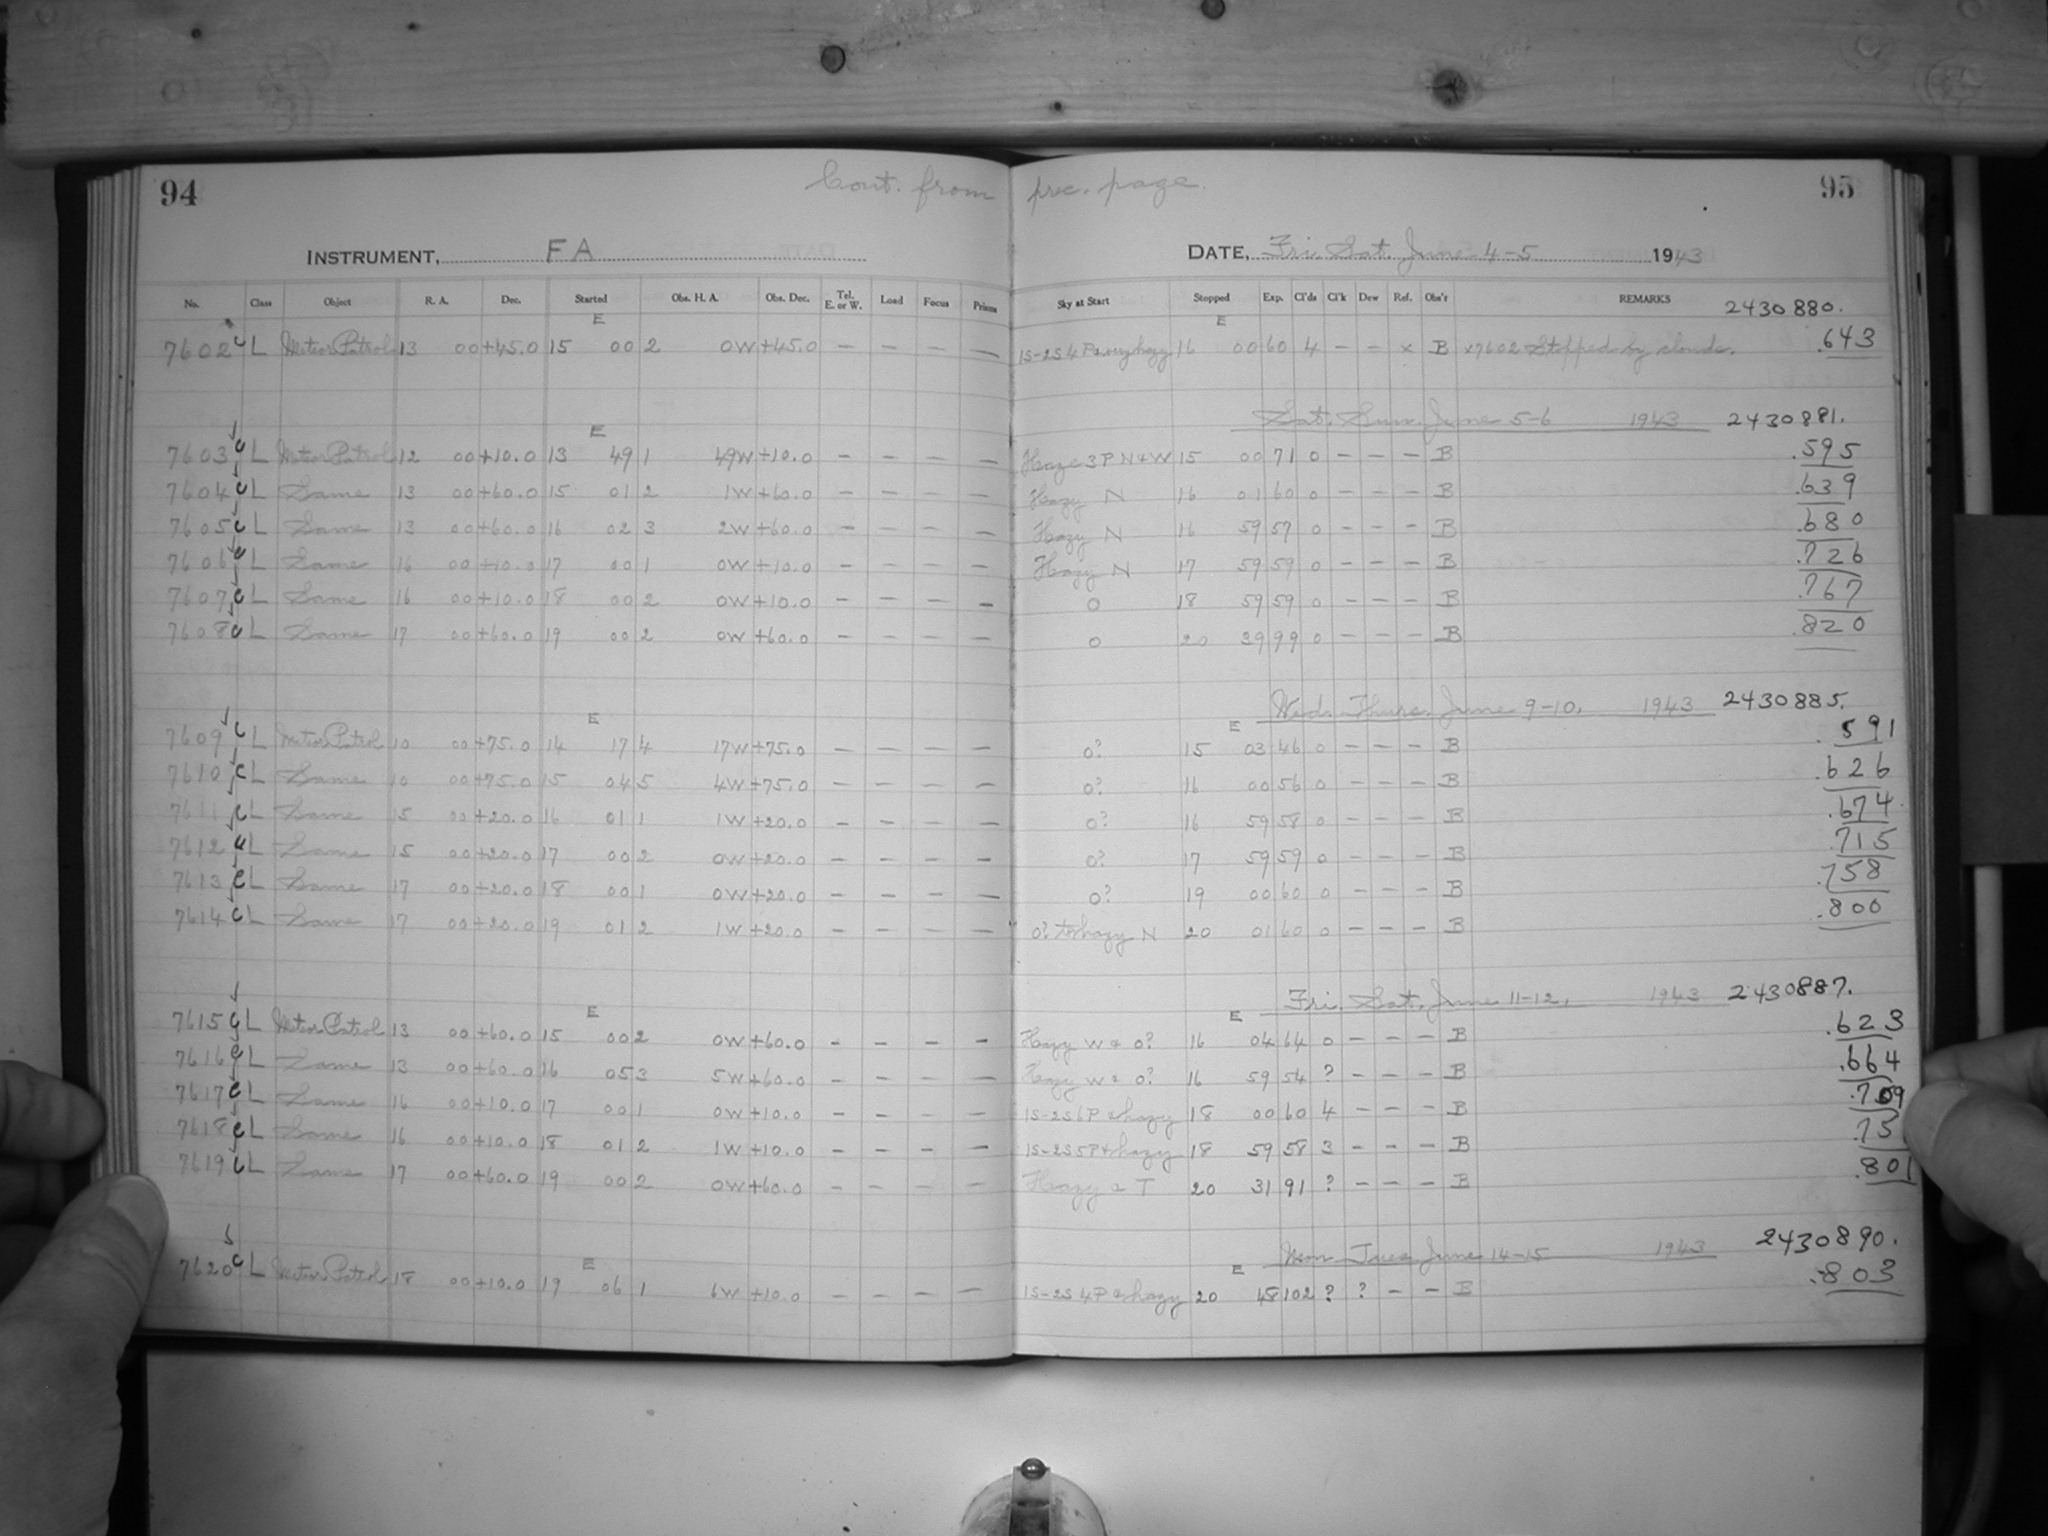 94 Cont. from prec. page. 95
INSTRUMENT, FA DATE, Fri. Sat. June 4-5 1943
No. Class Object R. A. Dec. Started Obs. H. A. Obs. Dec. Tel. E. or W. Load Focus Prisms Sky at Start Stopped Exp. Cl'ds Cl'k Dew Ref. Obs'r REMARKS 2430 880.
E E
7602 c L Meteor Patrol 13 00 +45.0 15 00 2 0W +45.0 – – – – 1S-2S 4P & very hazy 16 00 60 4 – – x B x7602 Stopped by clouds. .643
Sat. Sun. June 5-6 1943 2430 881.
E
7603 c L Meteor Patrol 12 00 +10.0 13 49 1 49W +10.0 – – – – Haze 3P N & W 15 00 71 0 – – – B .595
7604 c L Same 13 00 +60.0 15 01 2 1W +60.0 – – – – Hazy N 16 01 60 0 – – – B .639
7605 c L Same 13 00 +60.0 16 02 3 2W +60.0 – – – – Hazy N 16 59 57 0 – – – B .680
7606 c L Same 16 00 +10.0 17 00 1 0W +10.0 – – – – Hazy N 17 59 59 0 – – – B .726
7607 c L Same 16 00 +10.0 18 00 2 0W +10.0 – – – – 0 18 59 59 0 – – – B .767
7608 c L Same 17 00 +60.0 19 00 2 0W +60.0 – – – – 0 20 39 99 0 – – – B .820
Wed. Thurs. June 9-10, 1943 2430885.
E E
7609 c L Meteor Patrol 10 00 +75.0 14 17 4 17W +75.0 – – – – 0? 15 03 46 0 – – – B .591
7610 c L Same 10 00 +75.0 15 04 5 4W +75.0 – – – – 0? 16 00 56 0 – – – B .626
7611 c L Same 15 00 +20.0 16 01 1 1W +20.0 – – – – 0? 16 59 58 0 – – – B .674
7612 c L Same 15 00 +20.0 17 00 2 0W +20.0 – – – – 0? 17 59 59 0 – – – B .715
7613 c L Same 17 00 +20.0 18 00 1 0W +20.0 – – – – 0? 19 00 60 0 – – – B .758
7614 c L Same 17 00 +20.0 19 01 2 1W +20.0 – – – – 0? to hazy N 20 01 60 0 – – – B .800
Fri. Sat. June 11-12, 1943 2430887.
E E
7615 c L Meteor Patrol 13 00 +60.0 15 00 2 0W +60.0 – – – – Hazy W & 0? 16 04 64 0 – – – B .623
7616 c L Same 13 00 +60.0 16 05 3 5W +60.0 – – – – Hazy W & 0? 16 59 54 ? – – – B .664
7617 c L Same 16 00 +10.0 17 00 1 0W +10.0 – – – – 1S-2S 6P & hazy 18 00 60 4 – – – B .709
7618 c L Same 16 00 +10.0 18 01 2 1W +10.0 – – – – 1S-2S 5P & hazy 18 59 58 3 – – – B .75
7619 c L Same 17 00 +60.0 19 00 2 0W +60.0 – – – – Hazy & T 20 31 91 ? – – – B .801
Mon. Tues. June 14-15 1943 2430890.
E E
7620 c L Meteor Patrol 18 00 +10.0 19 06 1 6W +10.0 – – – – 1S-2S 4P & hazy 20 48 102 ? ? – – B .803